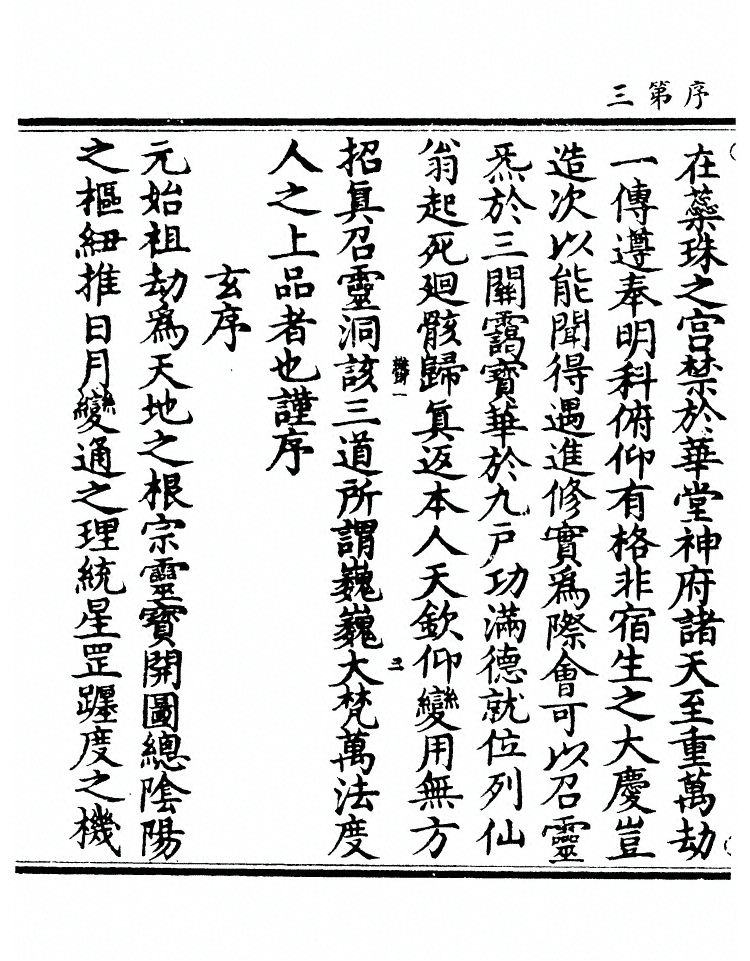 序第三
在蘂珠之宫禁於華堂神府諸天至重萬劫
一傳遵奉明科俯仰有格非宿生之大慶豈
造次以能聞得遇進修實爲際會可以召靈
炁於三關靄寳華於九戶功滿德就位列仙
翁起死廻骸歸眞返本人天欽仰變用無方
招眞召靈洞該三道所謂巍巍大梵萬法度
人之上品者也謹序
玄序
元始祖劫爲天地之根宗靈寳開圖總陰陽
之樞紐推日月變通之理統星罡躔度之機